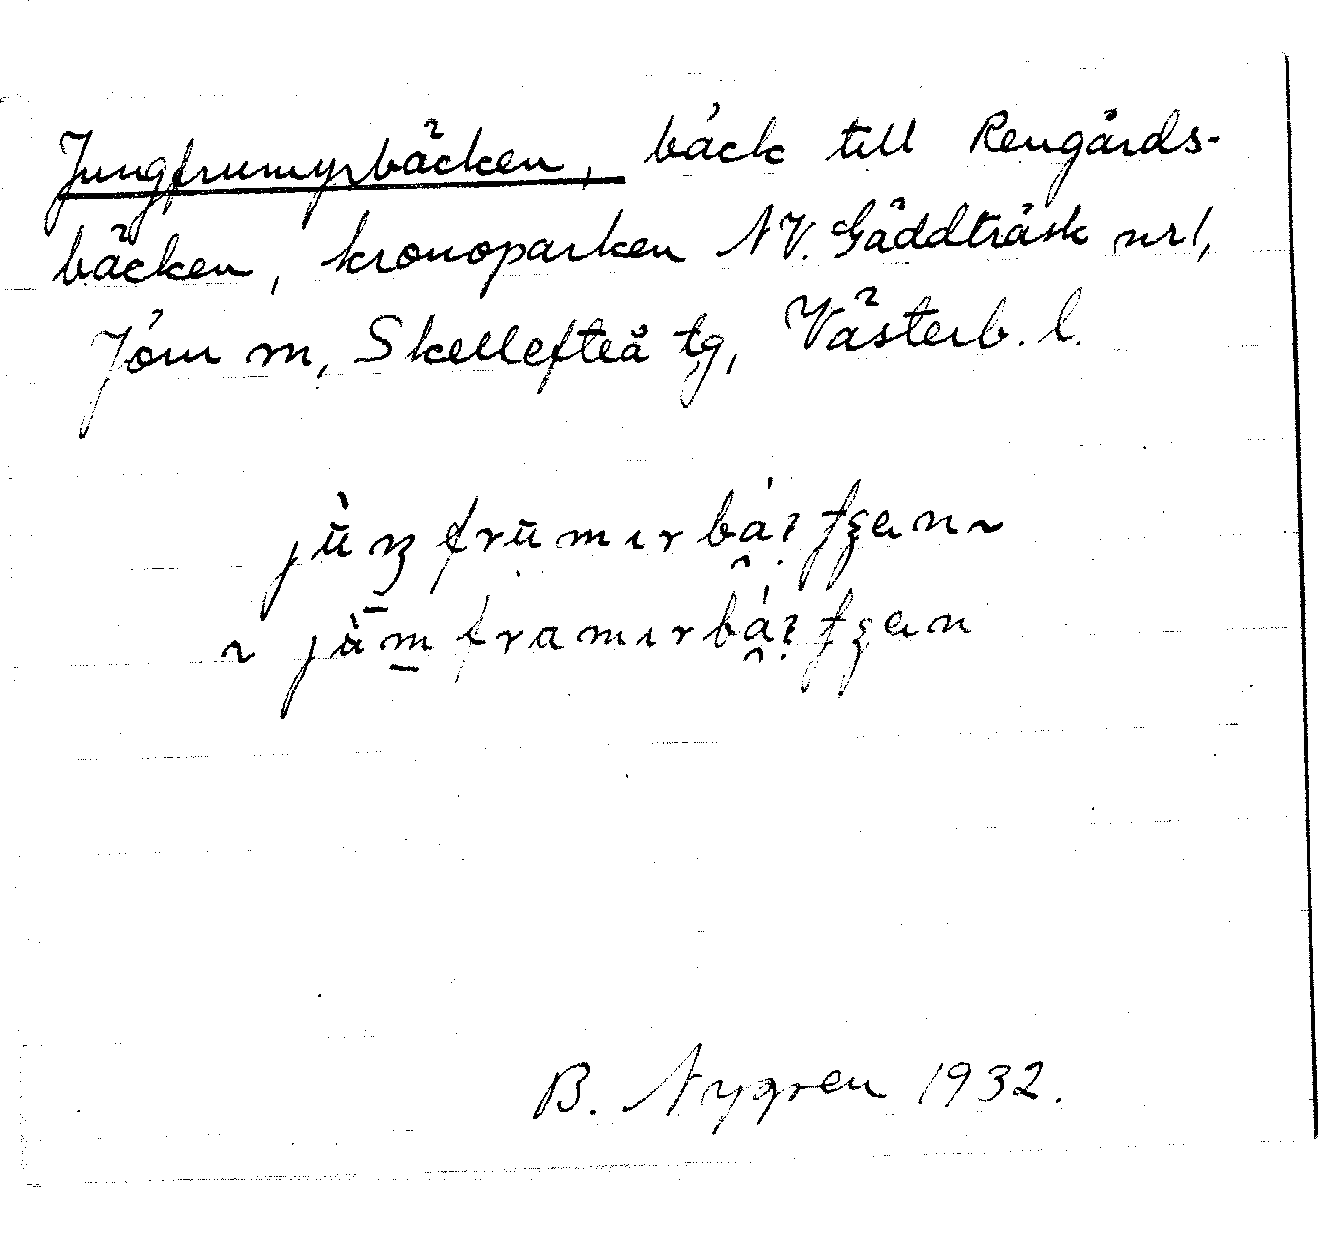 Jungfrumyrbäcken, bäck till Rengårds-
bäcken, kronoparken NV. Gäddträsk nr 1,
Jörn m, Skellefteå tg, Västerb. l.
B. Nygren 1932.